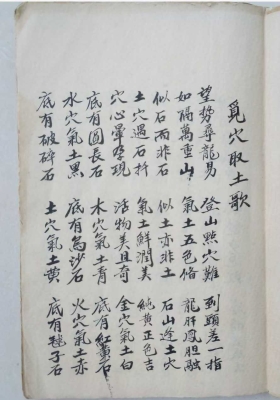 覓穴取土歌
望勢尋龍易 登山點穴難 到頭差一指
如隔萬重山 氣土五色俻 龍肝鳳胆融
似石而非石 似土亦非土 石山逢土穴
土穴遇石扦 氣土鮮潤美 純黄正色吉
穴心暈孕現 活物美且奇 金穴氣土白
底有圓長石 木穴氣土青 底有紅黃石
水穴氣土黑 底有烏沙石 火穴氣土赤
底有破碎石 土穴氣土黄 底有子石